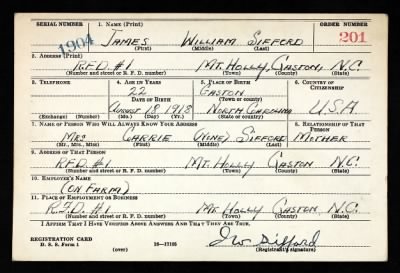 SERIAL NUMBER 1. NAME (Print) ORDER NUMBER
1904 JAMES WILLIAM SIFFORD 201
(First) (Middle) (Last)
2. ADDRESS (Print)
R.F.D. #1 MT. HOLLY, GASTON, N.C.
(Number and street or R. F. D. number) (Town) (County) (State)
3. TELEPHONE 4. AGE IN YEARS 5. PLACE OF BIRTH 6. COUNTRY OF CITIZENSHIP
22 GASTON
DATE OF BIRTH (Town or county)
AUGUST 18 1918 NORTH CAROLINA U.S.A.
(Exchange) (Number) (Mo.) (Day) (Yr.) (State or country)
7. NAME OF PERSON WHO WILL ALWAYS KNOW YOUR ADDRESS 8. RELATIONSHIP OF THAT PERSON
MRS CARRIE SIFFORD MOTHER
(Mr., Mrs., Miss) (First) (Middle) (Last)
9. ADDRESS OF THAT PERSON
R.F.D. #1 MT. HOLLY GASTON N.C.
(Number and street or R. F. D. number) (Town) (County) (State)
10. EMPLOYER'S NAME
(ON FARM)
11. PLACE OF EMPLOYMENT OR BUSINESS
R.F.D. #1 MT. HOLLY GASTON, N.C.
(Number and street or R. F. D. number) (Town) (County) (State)
I AFFIRM THAT I HAVE VERIFIED ABOVE ANSWERS AND THAT THEY ARE TRUE.
REGISTRATION CARD
D. S. S. Form 1 (over) 16—17105 J W Sifford
(Registrant's signature)